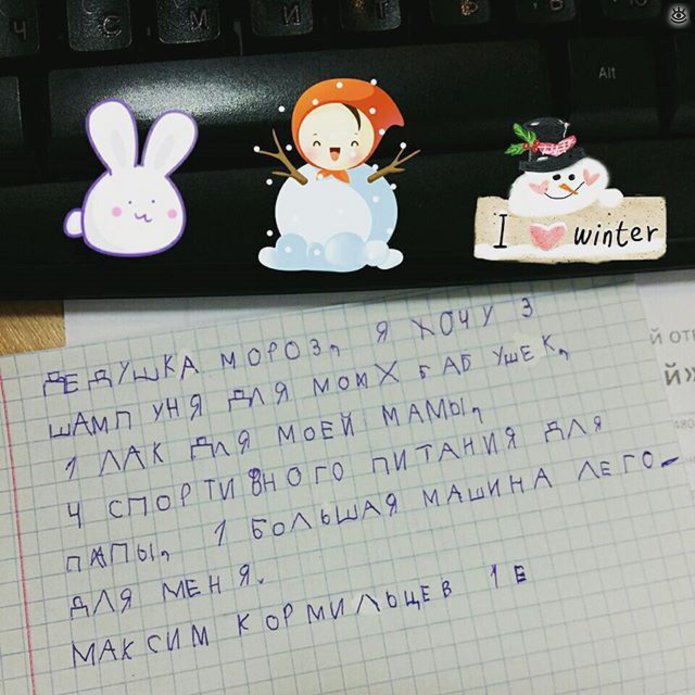 Ч С М И Т
Alt
I winter
й от
й»
480
ДЕДУШКА МОРОЗ, Я ХОЧУ 3
ШАМПУНЯ ДЛЯ МОИХ БАБУШЕК,
1 ЛАК ДЛЯ МОЕЙ МАМЫ,
4 СПОРТИВНОГО ПИТАНИЯ ДЛЯ
ПАПЫ, 1 БОЛЬШАЯ МАШИНА ЛЕГО
ДЛЯ МЕНЯ.
МАКСИМ КОРМИЛЬЦЕВ 1 Е